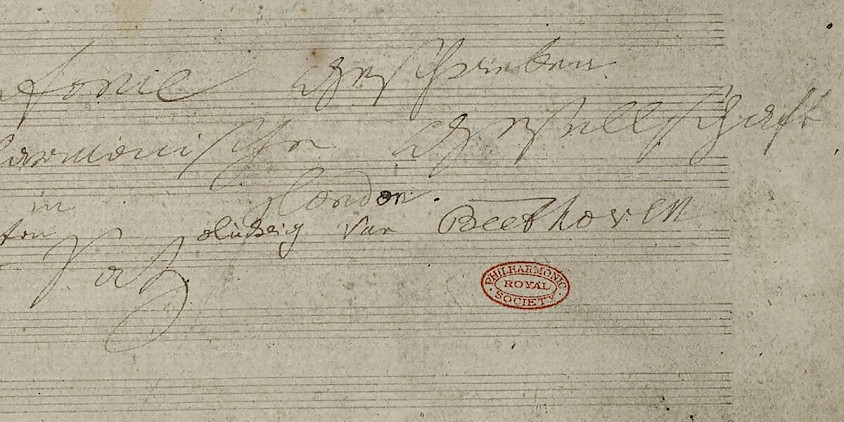 fonie geschrieben
harmonische Gesellschaft
in London.
ten Satz. Ludwig van Beethoven
PHILHARMONIC
ROYAL
SOCIETY